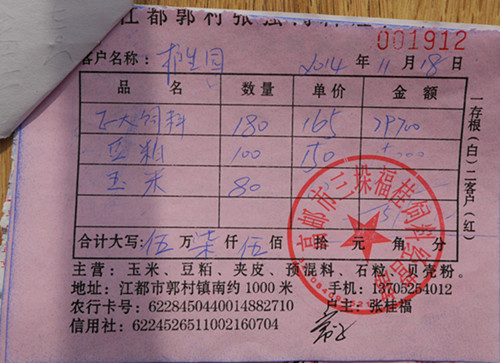 江都郭村张
001912
客户名称: 2014年11月18日
品名 数量 单价 金额
正大饲料 180 165 29700
豆粕 100 150
玉米 80
合计大写: 伍万柒仟伍佰 拾 元 角 分
一存根(白)二客户(红)
三垛福桂饲料经营部
主营:玉米、豆粕、夹皮、预混料、石粒、贝壳粉。
地址:江都市郭村镇南约1000米 手机:13705254012
农行卡号:6228450440014882710 户主:张桂福
信用社:6224526511002160704